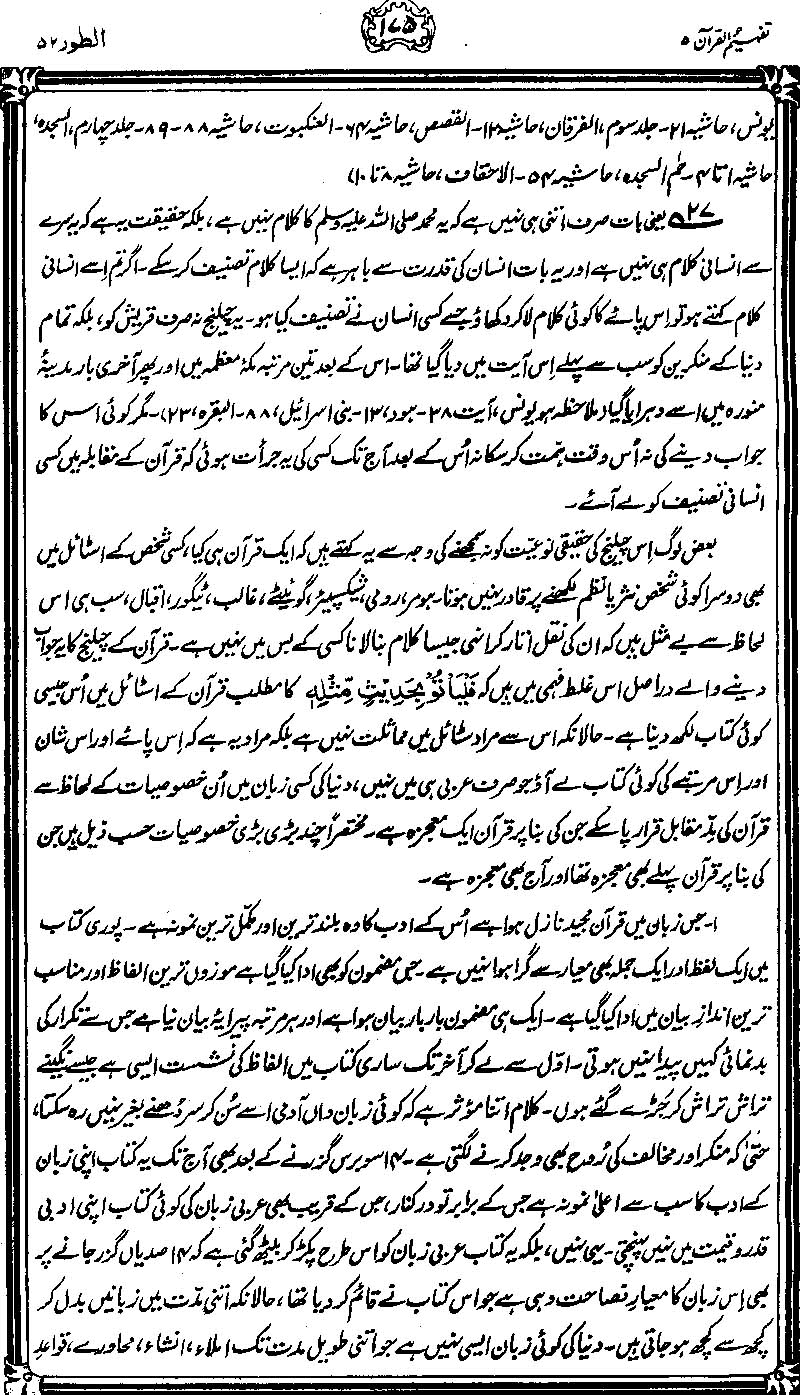 تفہیم القرآن ۵
۱۷۵
الطور ۵۲
یونس، حاشیہ ۲۱- جلد سوم، الفرقان، حاشیہ ۱۲- القصص، حاشیہ ۶۴- العنکبوت، حاشیہ ۸۸-۸۹- جلد چہارم، السجدہ،
حاشیہ ۱ تا ۴- حٰم السجدہ، حاشیہ ۵۴- الاحقاف، حاشیہ ۸ تا ۱۰)
۲۷ یعنی بات صرف اتنی ہی نہیں ہے کہ یہ محمد صلی اللہ علیہ وسلم کا کلام نہیں ہے، بلکہ حقیقت یہ ہے کہ یہ سرے
سے انسانی کلام ہی نہیں ہے اور یہ بات انسان کی قدرت سے باہر ہے کہ ایسا کلام تصنیف کر سکے۔ اگر تم اسے انسانی
کلام کہتے ہو تو اِس پائے کا کوئی کلام لا کر دکھاؤ جسے کسی انسان نے تصنیف کیا ہو۔ یہ چیلنج نہ صرف قریش کو، بلکہ تمام
دنیا کے منکرین کو سب سے پہلے اِس آیت میں دیا گیا تھا۔ اس کے بعد تین مرتبہ مکۂ معظمہ میں اور پھر آخری بار مدینۂ
منورہ میں اسے دہرایا گیا (ملاحظہ ہو یونس، آیت ۳۸- ہود، ۱۳- بنی اسرائیل، ۸۸- البقرہ، ۲۳)۔ مگر کوئی اس کا
جواب دینے کی نہ اُس وقت ہمت کر سکا نہ اُس کے بعد آج تک کسی کی یہ جرأت ہوئی کہ قرآن کے مقابلہ میں کسی
انسانی تصنیف کو لے آئے۔
بعض لوگ اِس چیلنج کی حقیقی نوعیت کو نہ سمجھنے کی وجہ سے یہ کہتے ہیں کہ ایک قرآن ہی کیا، کسی شخص کے اسٹائل میں
بھی دوسرا کوئی شخص نثر یا نظم لکھنے پر قادر نہیں ہوتا۔ ہومر، رومی، شیکسپیئر، گوئٹے، غالب، ٹیگور، اقبال، سب ہی اس
لحاظ سے بے مثل ہیں کہ ان کی نقل اتار کر انہی جیسا کلام بنا لانا کسی کے بس میں نہیں ہے۔ قرآن کے چیلنج کا یہ جواب
دینے والے دراصل اس غلط فہمی میں ہیں کہ فَلْيَأْتُوا بِحَدِيثٍ مِّثْلِهٖ کا مطلب قرآن کے اسٹائل میں اُس جیسی
کوئی کتاب لکھ دینا ہے۔ حالانکہ اس سے مراد سٹائل میں مماثلت نہیں ہے بلکہ مراد یہ ہے کہ اِس پائے اور اس شان
اور اِس مرتبے کی کوئی کتاب لے آؤ جو صرف عربی ہی میں نہیں، دنیا کی کسی زبان میں اُن خصوصیات کے لحاظ سے
قرآن کی مدِّ مقابل قرار پا سکے جن کی بنا پر قرآن ایک معجزہ ہے۔ مختصراً چند بڑی بڑی خصوصیات حسب ذیل ہیں جن
کی بنا پر قرآن پہلے بھی معجزہ تھا اور آج بھی معجزہ ہے۔
۱- جس زبان میں قرآن مجید نازل ہوا ہے اُس کے ادب کا وہ بلند ترین اور مکمل ترین نمونہ ہے۔ پوری کتاب
میں ایک لفظ اور ایک جملہ بھی معیار سے گرا ہوا نہیں ہے۔ جس مضمون کو بھی ادا کیا گیا ہے موزوں ترین الفاظ اور مناسب
ترین انداز بیان میں ادا کیا گیا ہے۔ ایک ہی مضمون بار بار بیان ہوا ہے اور ہر مرتبہ پیرایۂ بیان نیا ہے جس سے تکرار کی
بدنمائی کہیں پیدا نہیں ہوتی۔ اوّل سے لے کر آخر تک ساری کتاب میں الفاظ کی نشست ایسی ہے جیسے نگینے
تراش تراش کر جڑے گئے ہوں۔ کلام اتنا مؤثر ہے کہ کوئی زبان داں آدمی اسے سُن کر سر دُھنے بغیر نہیں رہ سکتا،
حتّٰی کہ منکر اور مخالف کی رُوح بھی وجد کرنے لگتی ہے۔ ۱۴ سو برس گزرنے کے بعد بھی آج تک یہ کتاب اپنی زبان
کے ادب کا سب سے اعلیٰ نمونہ ہے جس کے برابر تو درکنار، جس کے قریب بھی عربی زبان کی کوئی کتاب اپنی ادبی
قدر و قیمت میں نہیں پہنچتی۔ یہی نہیں، بلکہ یہ کتاب عربی زبان کو اس طرح پکڑ کر بیٹھ گئی ہے کہ ۱۴ صدیاں گزر جانے پر
بھی اِس زبان کا معیارِ فصاحت وہی ہے جو اس کتاب نے قائم کر دیا تھا، حالانکہ اتنی مدّت میں زبانیں بدل کر
کچھ سے کچھ ہو جاتی ہیں۔ دنیا کی کوئی زبان ایسی نہیں ہے جو اتنی طویل مدت تک املاء، انشاء، محاورے، قواعد